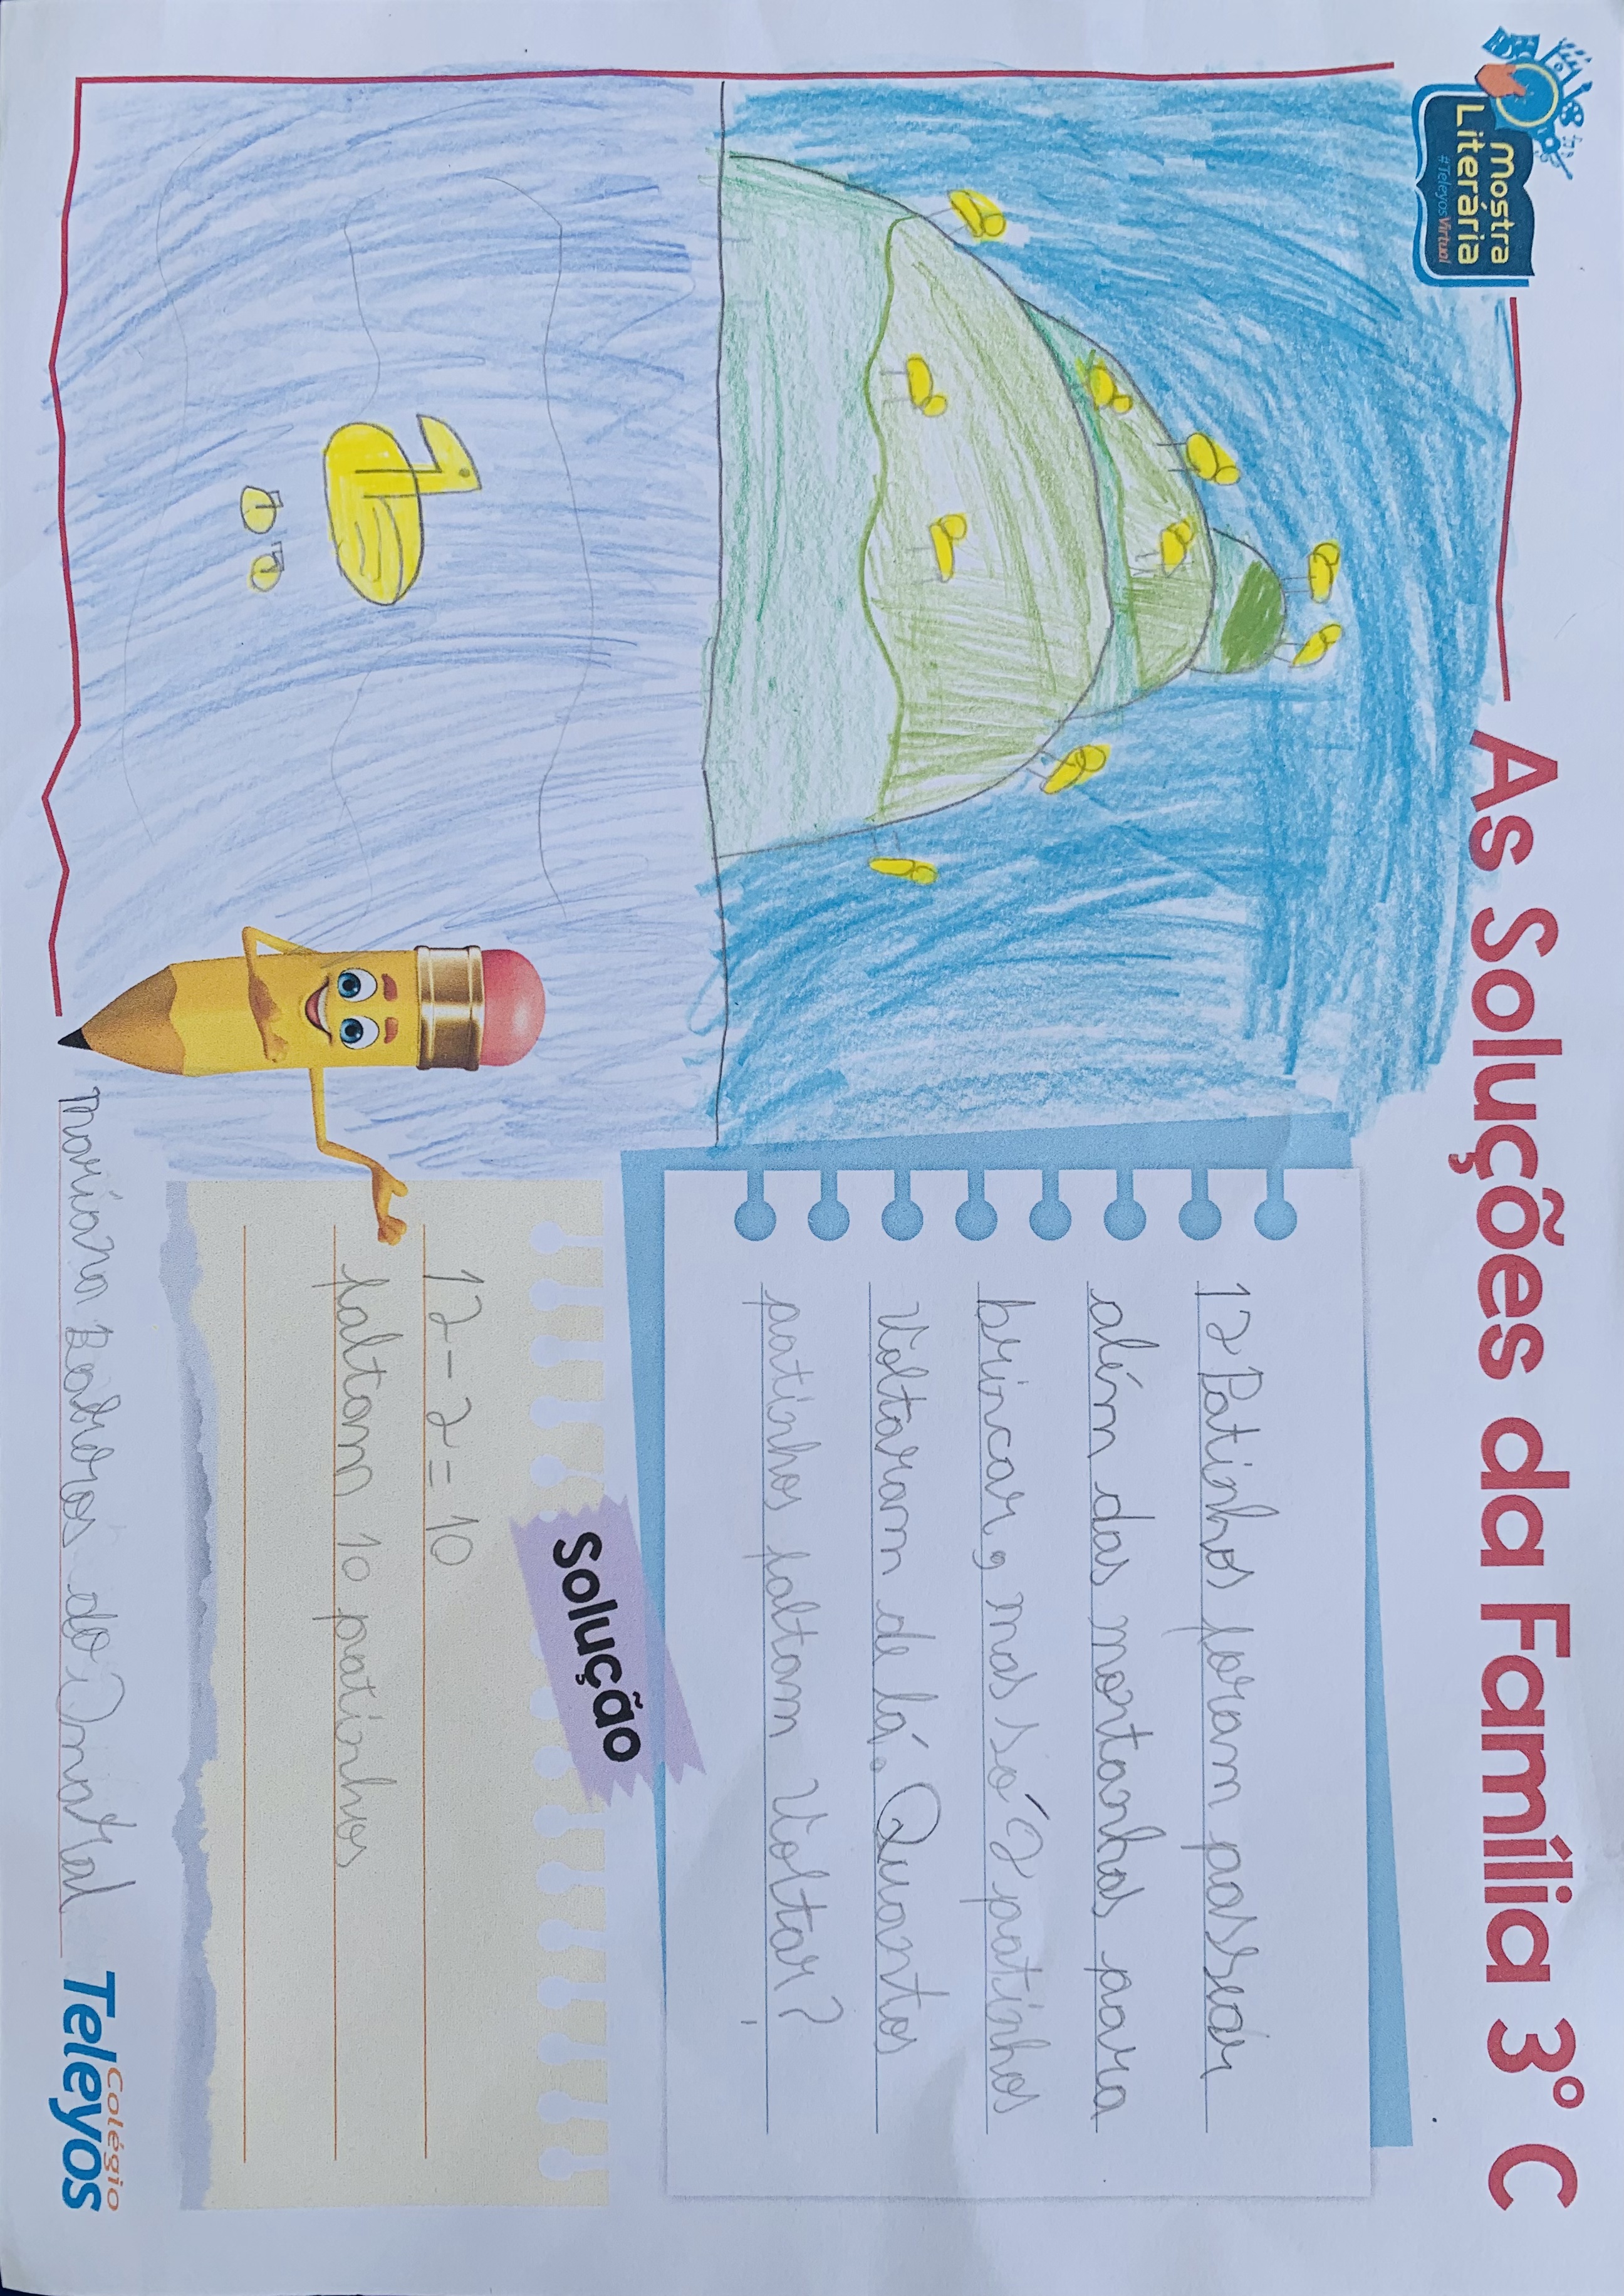 Mostra
Literária
#TeleyosVirtual
As Soluções da Família 3º C
12 Patinhos foram passear
além das montanhas para
brincar, mas só 2 patinhos
Voltaram de lá. Quantos
patinhos faltam Voltar?
Solução
12-2=10
faltam 10 patinhos
mariana
Colégio
Teleyos